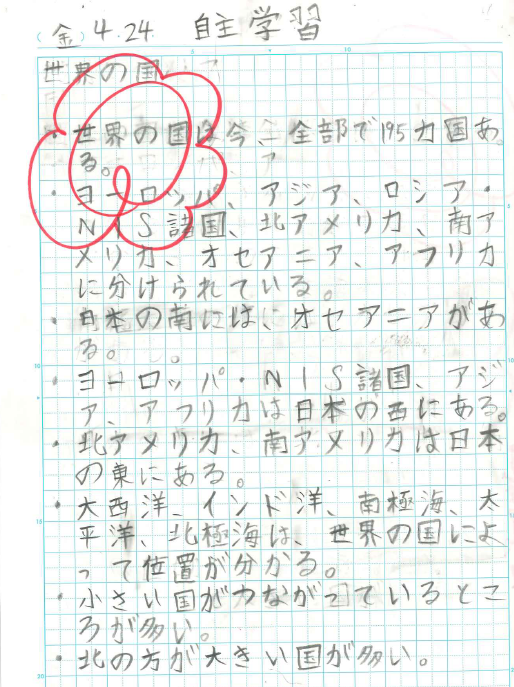 (金) 4.24 自主学習
世界の国
・世界の国は今、全部で195カ国あ
る。
・ヨーロッパ、アジア、ロシア・
NIS諸国、北アメリカ、南ア
メリカ、オセアニア、アフリカ
に分けられている。
・日本の南には、オセアニアがあ
る。
・ヨーロッパ・NIS諸国、アジ
ア、アフリカは日本の西にある。
・北アメリカ、南アメリカは日本
の東にある。
・大西洋、インド洋、南極海、太
平洋、北極海は、世界の国によ
って位置が分かる。
・小さい国がつながっているとこ
ろが多い。
・北の方が大きい国が多い。